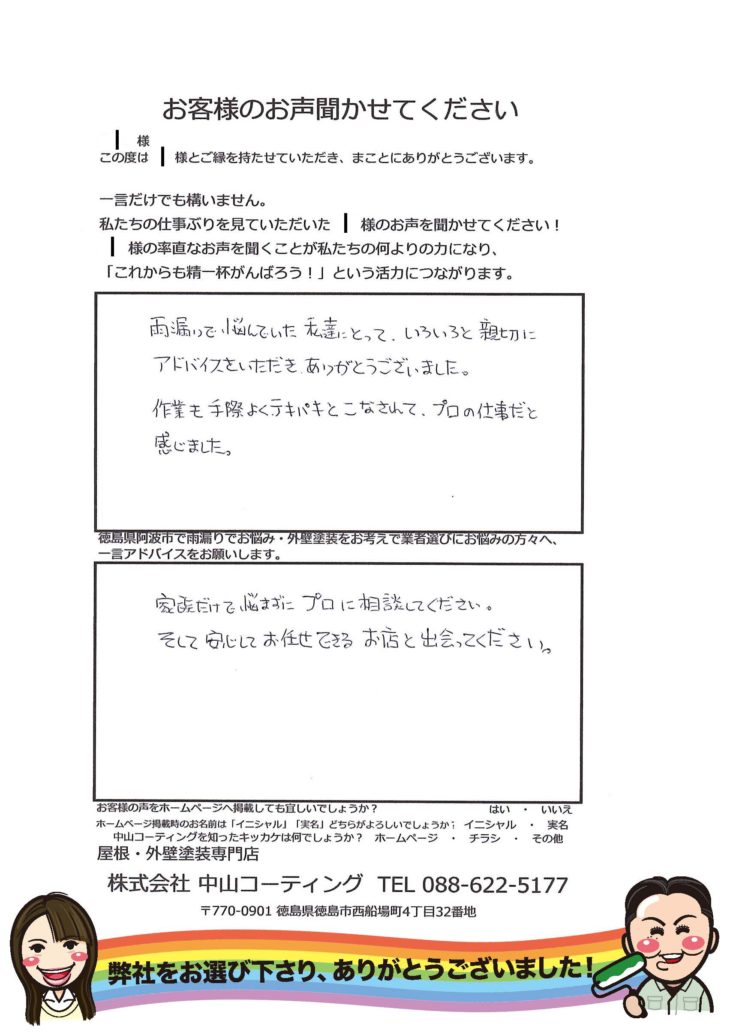 お客様のお声聞かせてください
様
この度は 様とご縁を持たせていただき、まことにありがとうございます。
一言だけでも構いません。
私たちの仕事ぶりを見ていただいた 様のお声を聞かせてください！
様の率直なお声を聞くことが私たちの何よりの力になり、
「これからも精一杯がんばろう！」という活力につながります。
雨漏りで悩んでいた私達にとって、いろいろと親切に
アドバイスをいただき、ありがとうございました。
作業も手際よくテキパキとこなされて、プロの仕事だと
感じました。
徳島県阿波市で雨漏りでお悩み・外壁塗装をお考えで業者選びにお悩みの方々へ、
一言アドバイスをお願いします。
家族だけで悩まずに プロに相談してください。
そして安心してお任せできるお店と出会ってください。
お客様の声をホームページへ掲載しても宜しいでしょうか？ はい ・ いいえ
ホームページ掲載時のお名前は「イニシャル」「実名」どちらがよろしいでしょうか？ イニシャル ・ 実名
中山コーティングを知ったキッカケは何でしょうか？ ホームページ ・ チラシ ・ その他
屋根・外壁塗装専門店
株式会社 中山コーティング TEL 088-622-5177
〒770-0901 徳島県徳島市西船場町4丁目32番地
弊社をお選び下さり、ありがとうございました！